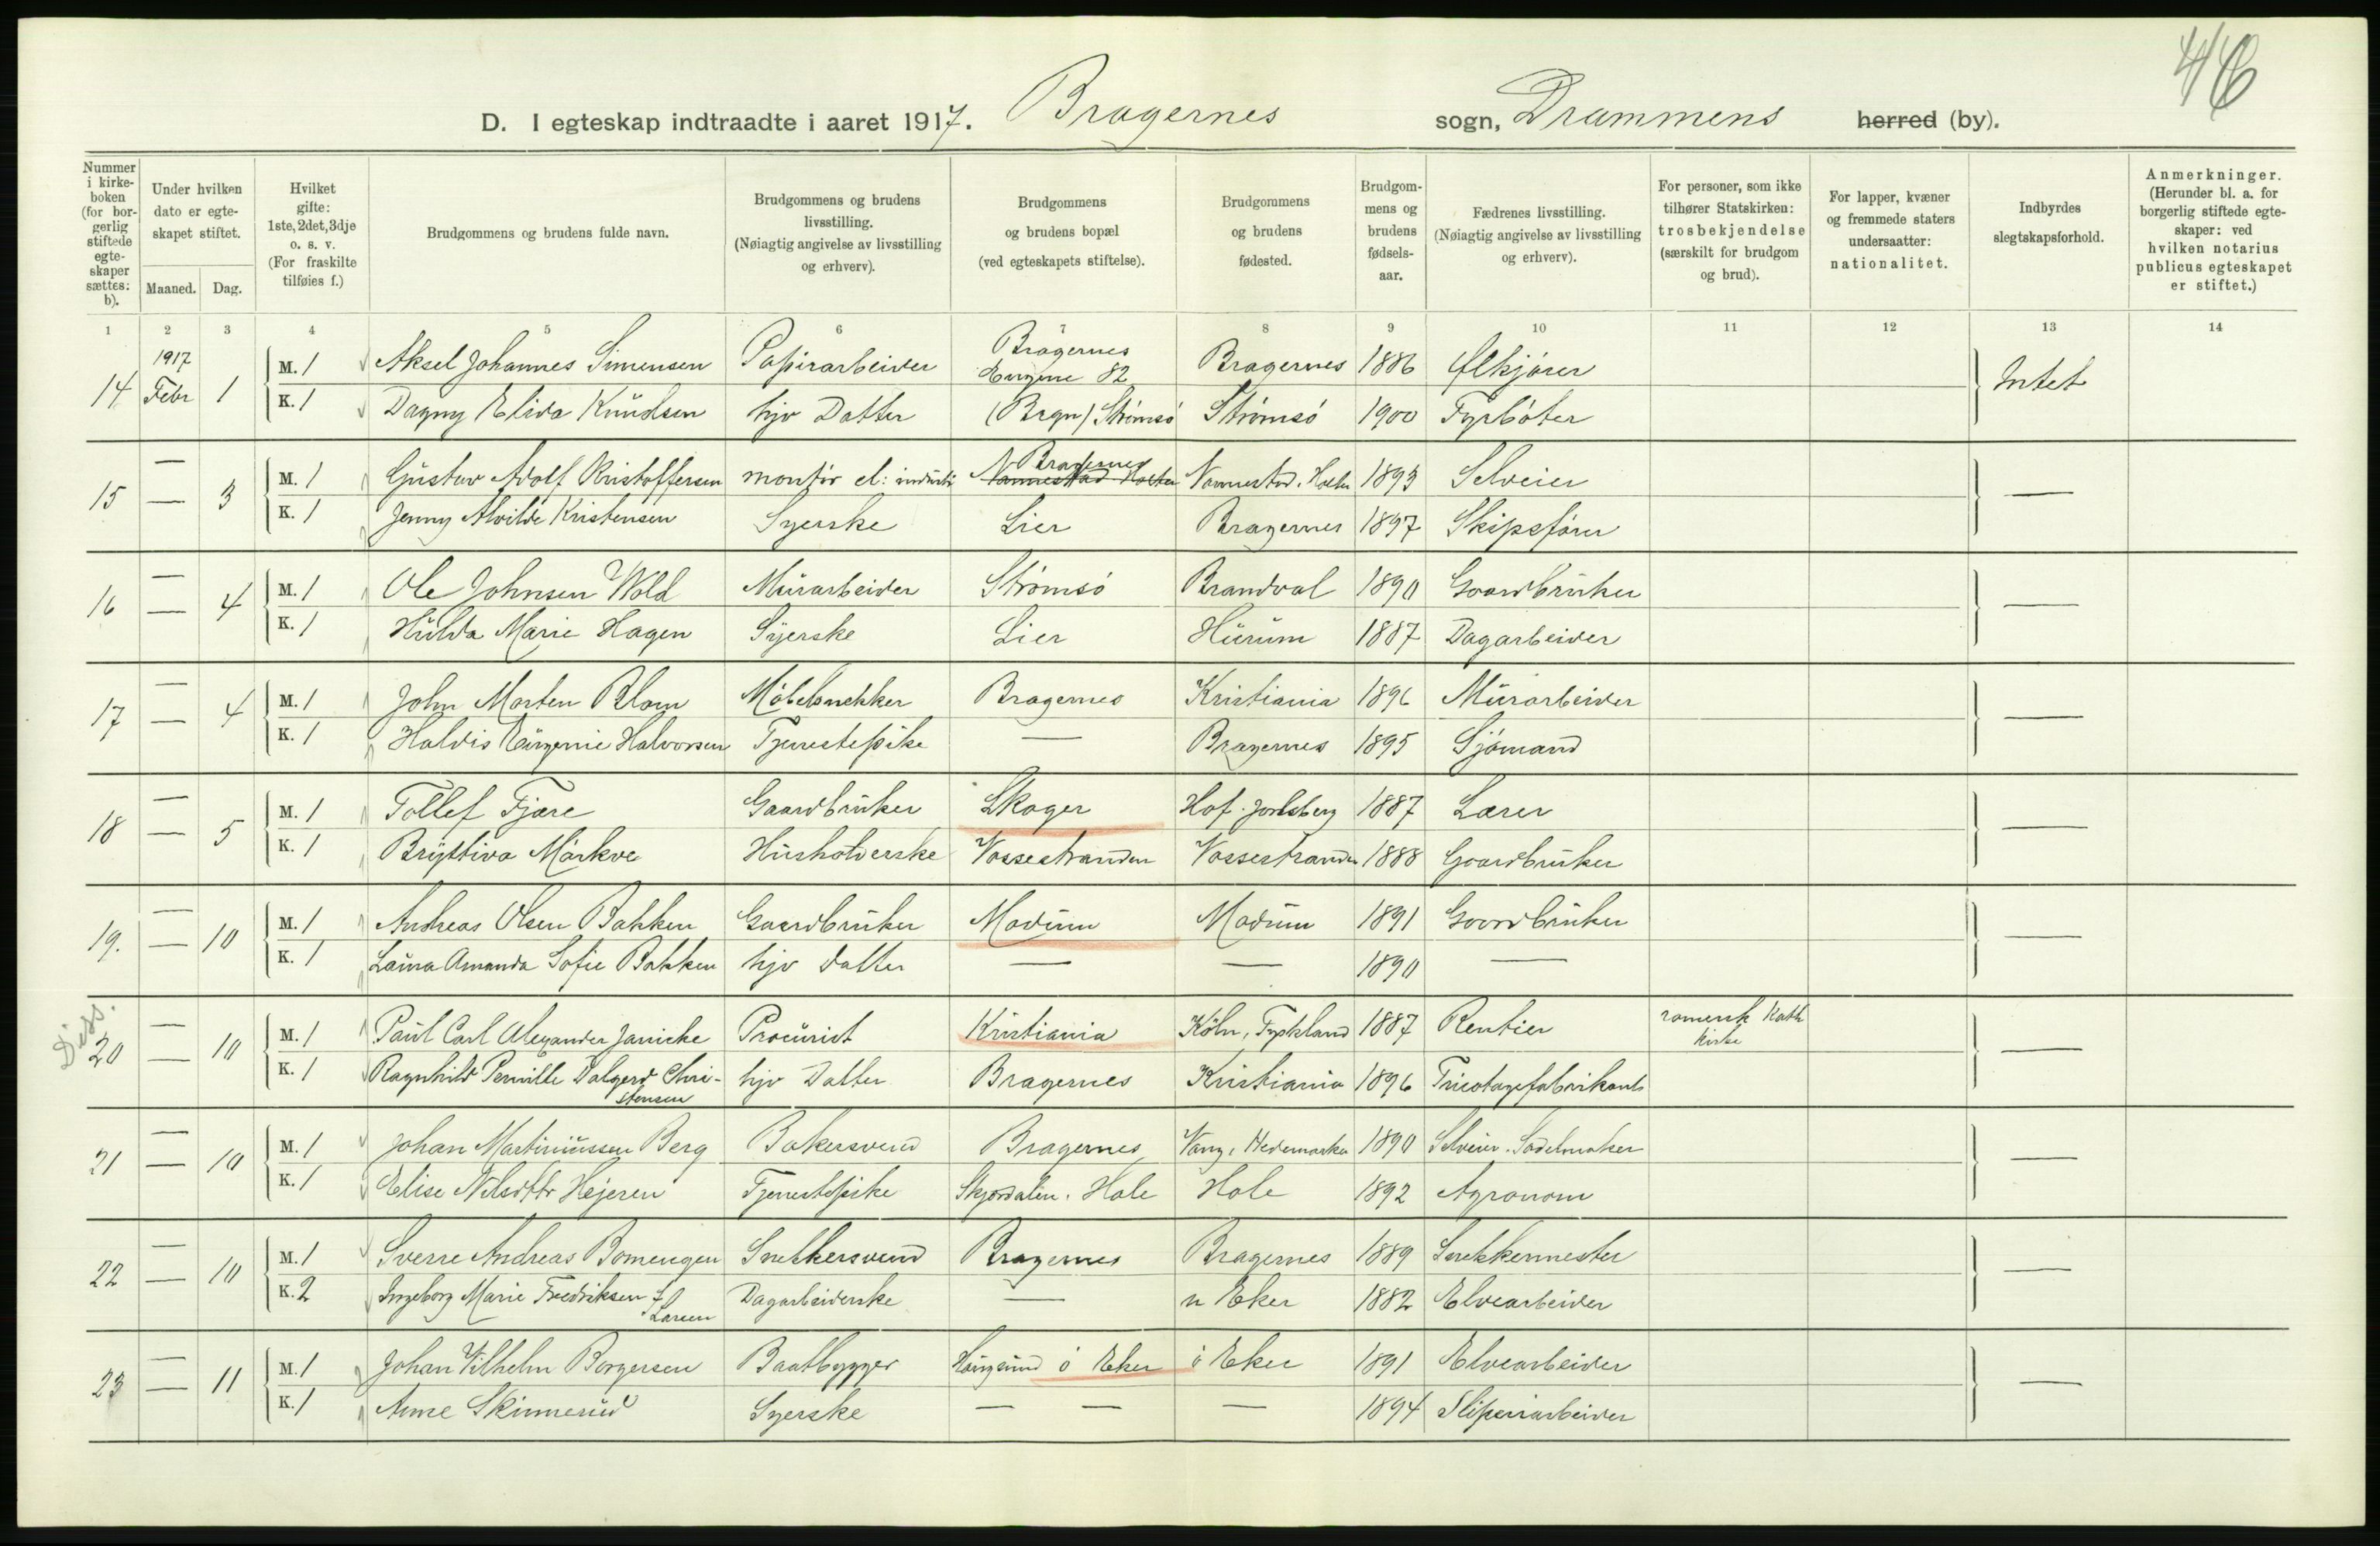 46
D. I egteskap indtraadte i aaret 1917. Bragernes sogn, Drammens herred (by).
Nummer i kirkeboken (for borgerlig stiftede egteskaper sættes: b).
Under hvilken dato er egteskapet stiftet.
Maaned. Dag.
Hvilket gifte: 1ste, 2det, 3dje o. s. v. (For fraskilte tilføies f.)
Brudgommens og brudens fulde navn.
Brudgommens og brudens livsstilling. (Nøiagtig angivelse av livsstilling og erhverv).
Brudgommens og brudens bopæl (ved egteskapets stiftelse).
Brudgommens og brudens fødested.
Brudgommens og brudens fødselsaar.
Fædrenes livsstilling. (Nøiagtig angivelse av livsstilling og erhverv).
For personer, som ikke tilhører Statskirken: trosbekjendelse (særskilt for brudgom og brud).
For lapper, kvæner og fremmede staters undersaatter: nationalitet.
Indbyrdes slegtskapsforhold.
Anmerkninger. (Herunder bl. a. for borgerlig stiftede egteskaper: ved hvilken notarius publicus egteskapet er stiftet.)
1 2 3 4 5 6 7 8 9 10 11 12 13 14
14 1917 Febr 1 M. 1 Aksel Johannes Simensen Papirarbeider Bragernes Engene 82 Bragernes 1886 Ølkjører Intet
K. 1 Dagny Elida Knudsen hjv Datter (Bragn) Strømsø Strømsø 1900 Fyrbøter
15 — — 3 M. 1 Gustav Adolf Kristoffersen montør el: industri Bragernes Nannestad Holter Nannestad, Holter 1893 Selveier —
K. 1 Jenny Alvilde Kristensen Syerske Lier Bragernes 1897 Skipsfører
16 — — 4 M. 1 Ole Johnsen Wold Murarbeider Strømsø Brandval 1890 Gaardbruker —
K. 1 Hulda Marie Hagen Syerske Lier Hurum 1887 Dagarbeider
17 — — 4 M. 1 John Morten Blom Møbelsnekker Bragernes Kristiania 1896 Murarbeider —
K. 1 Haldis Eugenie Halvorsen Tjenestepike — Bragernes 1895 Sjømand
18 — — 5 M. 1 Tollef Fjære Gaardbruker Skoger Hof. Jarlsberg 1887 Lærer —
K. 1 Bryttiva Mørkve Husholderske Vossestranden Vossestranden 1888 Gaardbruker
19. — — 10 M. 1 Andreas Olsen Bakken Gaardbruker Modum Modum 1891 Gaardbruker —
K. 1 Laura Amanda Sofie Bakken hjv datter — — 1890 —
Diss.
20 — — 10 M. 1 Paul Carl Alexander Janicke Procurist Kristiania Köln, Tyskland 1887 Rentier romersk Kath Kirke —
K. 1 Ragnhild Pernille Dalgerd Christensen hjv Datter Bragernes Kristiania 1896 Tricotagefabrikant
21 — — 10 M. 1 Johan Martiniussen Berg Bakersvend Bragernes Vang, Hedemarken 1890 Selveier. Sadelmaker —
K. 1 Elise Nilsdtr Hejeren Tjenestepike Skjørdalen. Hole Hole 1892 Agronom
22 — — 10 M. 1 Sverre Andreas Bomengen Snekkersvend Bragernes Bragernes 1889 Snekkermester —
K. 2 Ingeborg Marie Fredriksen f. Larsen Dagarbeiderske — n Eker 1882 Elvearbeider
23 — — 11 M. 1 Johan Vilhelm Borgersen Baatbygger Hougsund ø Eker ø Eker 1891 Elvearbeider —
K. 1 Anne Skinnerud Syerske — — — 1894 Sliperiarbeider